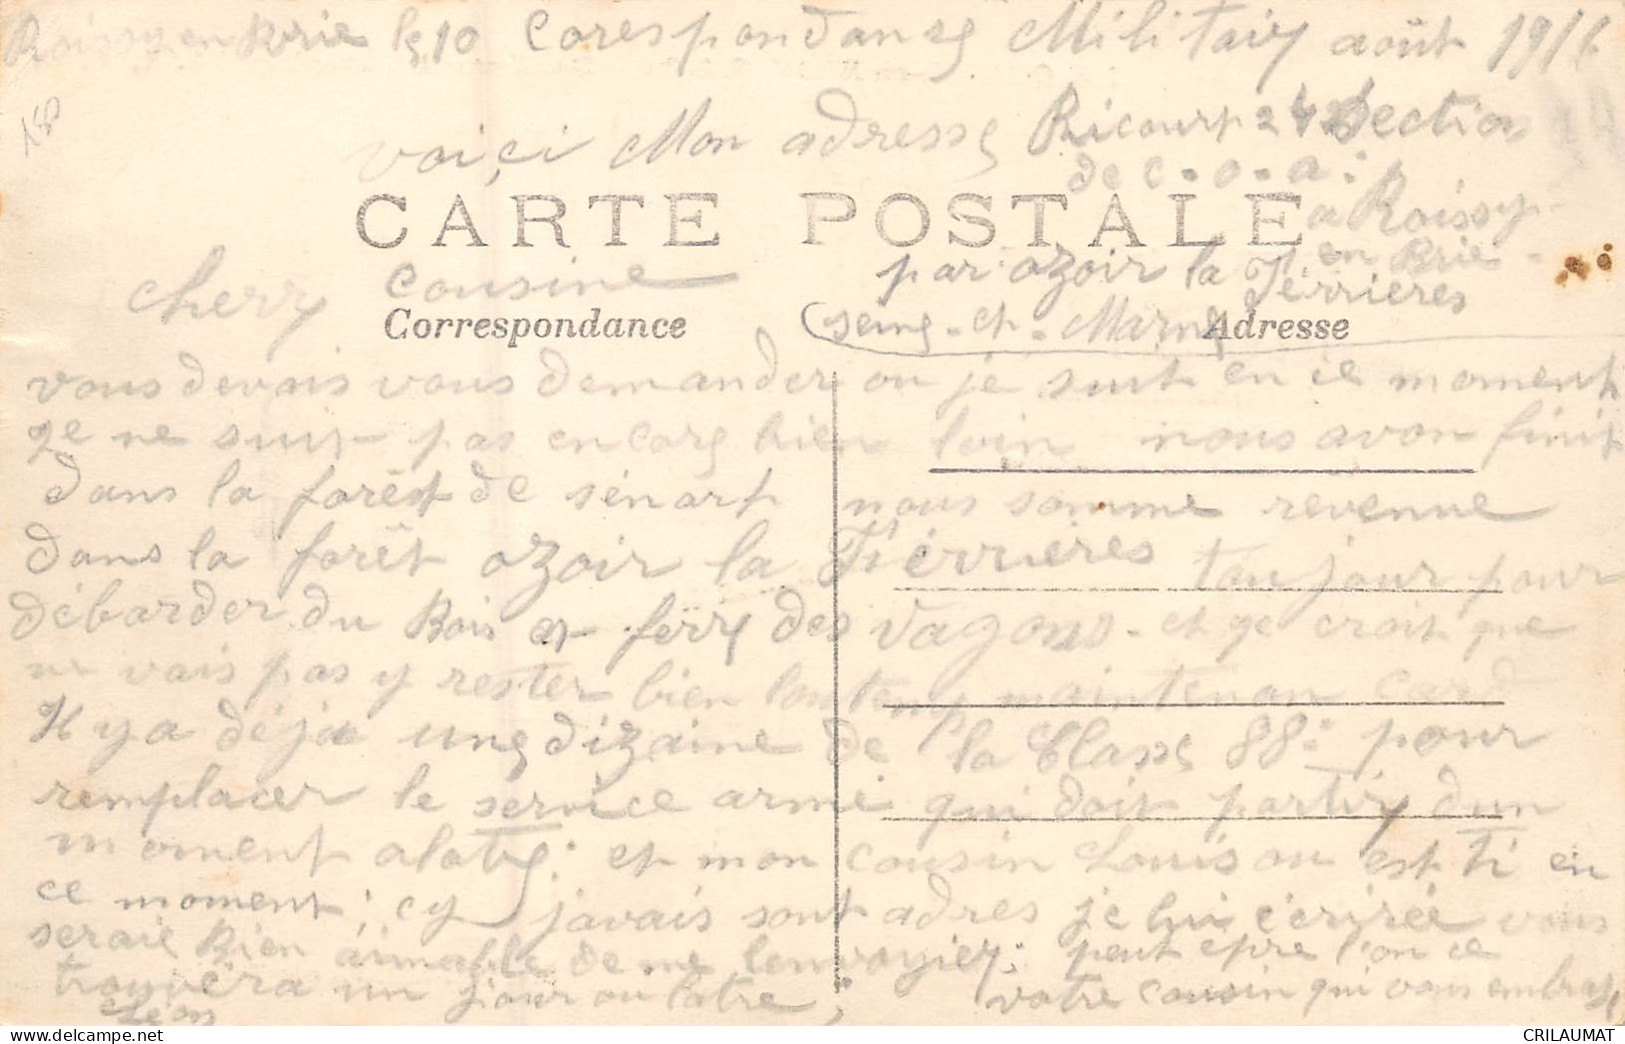 Roissy en Brie le 10 Corespondanse Militair août 1916
150
voiçi Mon adresse Ricourt 24 Section
de c.o.a.
a Roissy
en Brie
CARTE POSTALE
par ozoir la Férrières
cherr cousine
Correspondance
seine. et. Marne
Adresse
vous devais vous demander ou je suit en ce moment
ge ne suit pas encore bien loin nous avon finit
dans la forêt de sénart nous somme revenue
dans la forêt ozoir la Férrieres toujour pour
débarder du Bois et ferre des vagons. et ge croit que
ne vais pas y rester bien lontemp maintenan card
Il y a déja une dizaine de la Classe 88: pour
remplacer le service armé qui doit partir dun
moment a latre: et mon cousin Louis ou est ti en
ce moment; cy javais sont adres je lui écrirée vous
seraie Bien aimable de me lenvoyier; peut epre l'on ce
trouvéra un jour ou latre, votre cousin qui vous embrase
Léon
CRILAUMAT